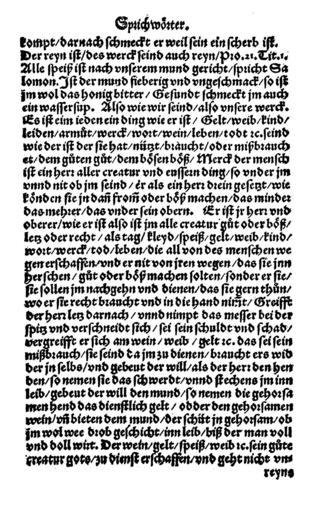 Sprichwörter.
kompt/darnach schmeckt er weil sein ein scherb ist.
Der reyn ist/des werck seind auch reyn/Pro.21. Tit.1.
Alle speiß ist nach vnserem mund gericht/spricht Sa
lomon. Ist der mund fieberig vnd vngeschmack/so ist
jm wol das honig bitter/Gesundt schmeckt jm auch
ein wassersup. Also wie wir seind/also vnsere werck.
Es ist ein ieden ein ding wie er ist/Gelt/weib/kind/
leiden/armůt/werck/wort/wein/leben/todt ꝛc. seind
wie der ist der sie hat/nützt/braucht/oder mißbrauch
et/dem gůten gůt/dem bösen böß/Merck der mensch
ist ein herr aller creatur vnd eussern ding/so vnder jm
vnnd nit ob jm seind/er als ein herr drein gesetzt/wie
könden sie jn dañ from̃ oder böß machen/das minder
das mehrer/das vnder sein obern. Er ist jr herr vnd
oberer/wie er ist also ist jm alle creatur gůt oder böß/
letz oder recht/als tag/kleyd/speiß/gelt/weib/kind/
wort/werck/tod/leben/die all von des menschen we
gen erschaffen/vnd er nit von jren wegen/das sie jnn
herschen/gůt oder böß machen solten/sonder er sie/
sie sollen jm nachgehn vnd dienen/das sie gern thůn/
wo er sie recht braucht vnd in die hand nim̃t/Greifft
der herr letz darnach/vnnd nimpt das messer bei der
spitz vnd verschneidt sich/sei sein schuldt vnd schad/
vergreifft er sich am wein/weib/gelt ꝛc. das sei sein
mißbrauch/sie seind da jm zu dienen/braucht ers wid
der jn selbs/vnd gebeut der will/als der herr den hen
den/so nemen sie das schwerdt/vnnd stechens jm inn
leib/gebeut der will den mund/so nemen die gehorsa
men hend das dienstlich gelt/odder den gehorsamen
wein/vñ bieten dem mund/der schüt jn gehorsam/ob
jm wol wee drob geschicht/inn leib/biß der man voll
vnd doll wirt. Der wein/gelt/speiß/weib ꝛc. sein gůte
creatur gots/zu dienst erschaffen/vnd geht nicht vns
reyns